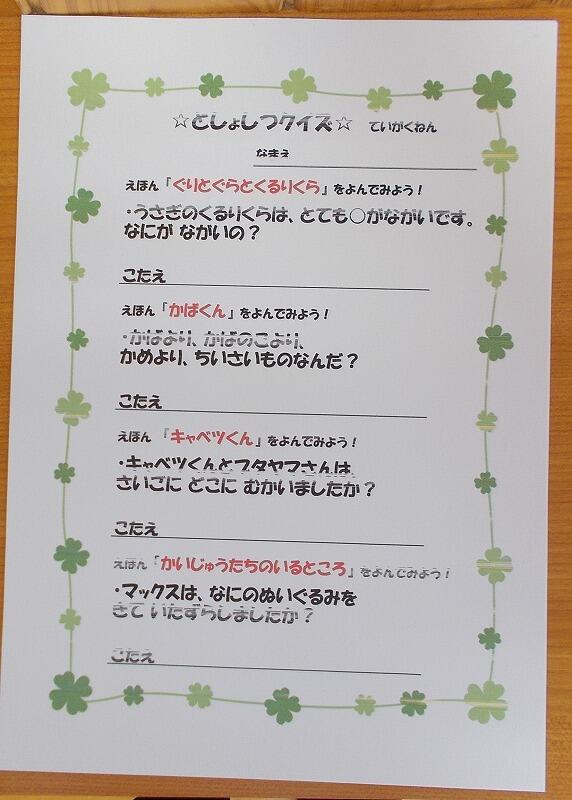 ☆としょしつクイズ☆ ていがくねん
なまえ
えほん「ぐりとぐらとくるりくら」をよんでみよう！
・うさぎのくるりくらは、とても○がながいです。
なにが ながいの？
こたえ
えほん「かばくん」をよんでみよう！
・かばより、かばのこより、
かめより、ちいさいものなんだ？
こたえ
えほん「キャベツくん」をよんでみよう！
・キャベツくんとブタヤマさんは
さいごに どこに むかいましたか？
こたえ
えほん「かいじゅうたちのいるところ」をよんでみよう！
・マックスは、なにのぬいぐるみを
きて いたずらしましたか？
こたえ